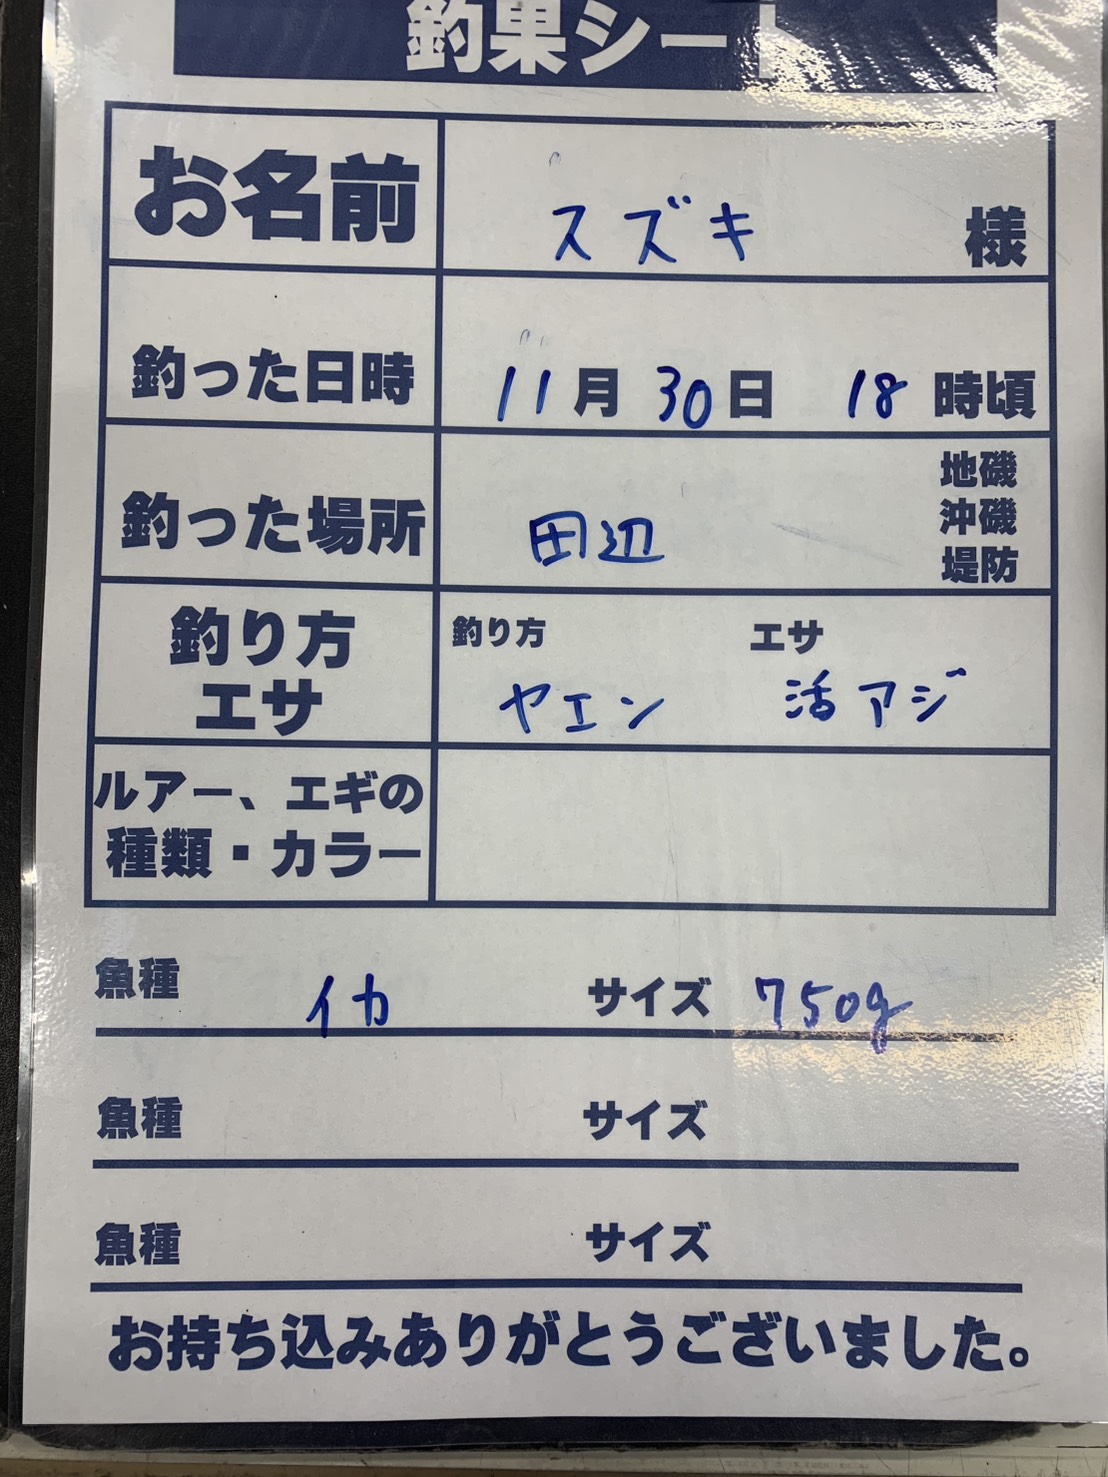 釣果シート
お名前 スズキ 様
釣った日時 11月30日 18時頃
釣った場所 田辺 地磯
沖磯
堤防
釣り方 エサ 釣り方 エサ
ヤエン 活アジ
ルアー、エギの
種類・カラー
魚種 イカ サイズ 750g
魚種 サイズ
魚種 サイズ
お持ち込みありがとうございました。